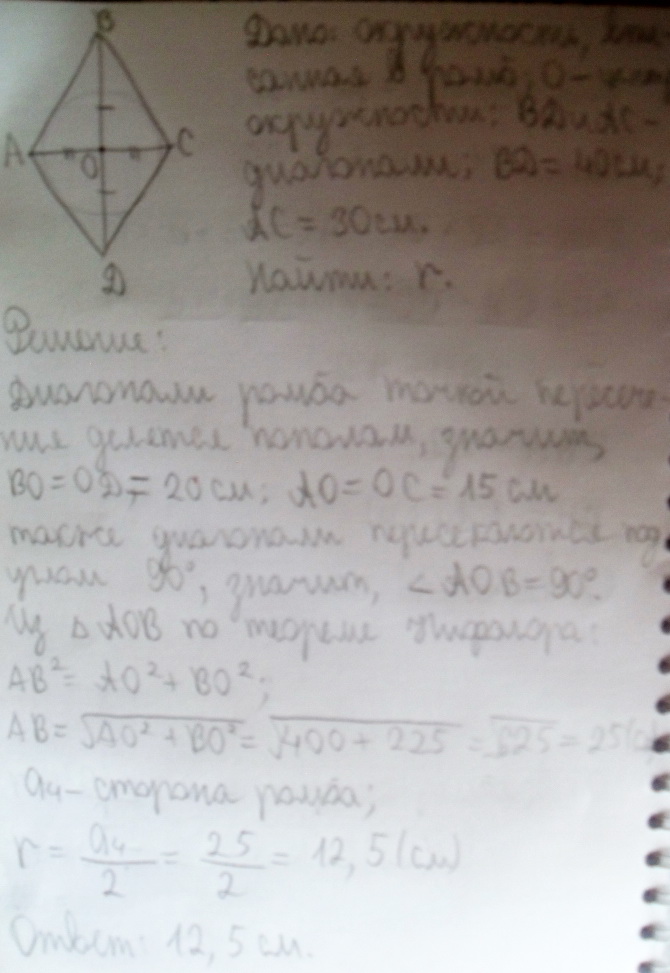 B
A
C
O
D
Дано: окружность, впи
санная в ромб; O - цент
окружности; BD и AC -
диагонали; BD = 40 см;
AC = 30 см.
Найти: r.
Решение:
Диагонали ромба точкой пересече-
ния делятся пополам, значит,
BO = OD = 20 см; AO = OC = 15 см
также диагонали пересекаются под
углом 90°, значит, ∠AOB = 90°.
Из △AOB по теореме Пифагора:
AB² = AO² + BO²;
AB = √AO² + BO² = √400 + 225 = √625 = 25 (с
a₄ - сторона ромба;
r = a₄/2 = 25/2 = 12,5 (см)
Ответ: 12,5 см.